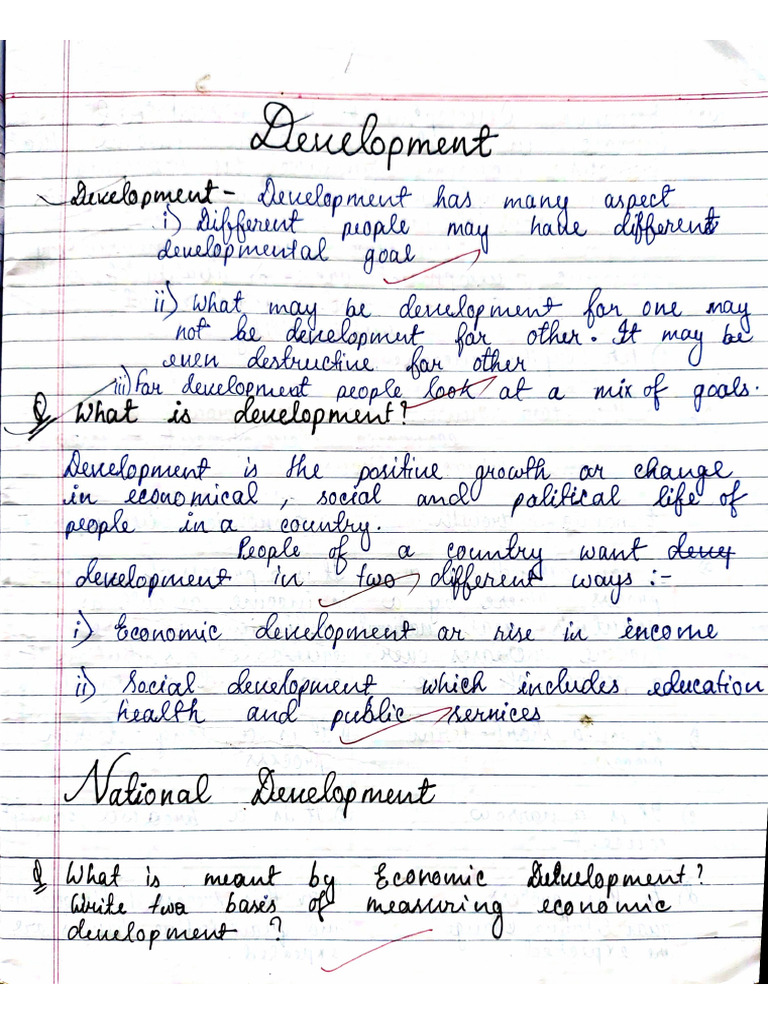 Development
Development - Development has many aspect
i) Different people may have different
developmental goal
ii) What may be development for one may
not be development for other. It may be
even destructive for other
iii) For development people look at a mix of goals.
Q What is development?
Development is the positive growth or change
in economical, social and political life of
people in a country.
People of a country want devep
development in two different ways :-
i) Economic development or rise in income
ii) Social development which includes education
health and public services
National Development
Q What is meant by Economic Development?
Write two bases of measuring economic
development ?